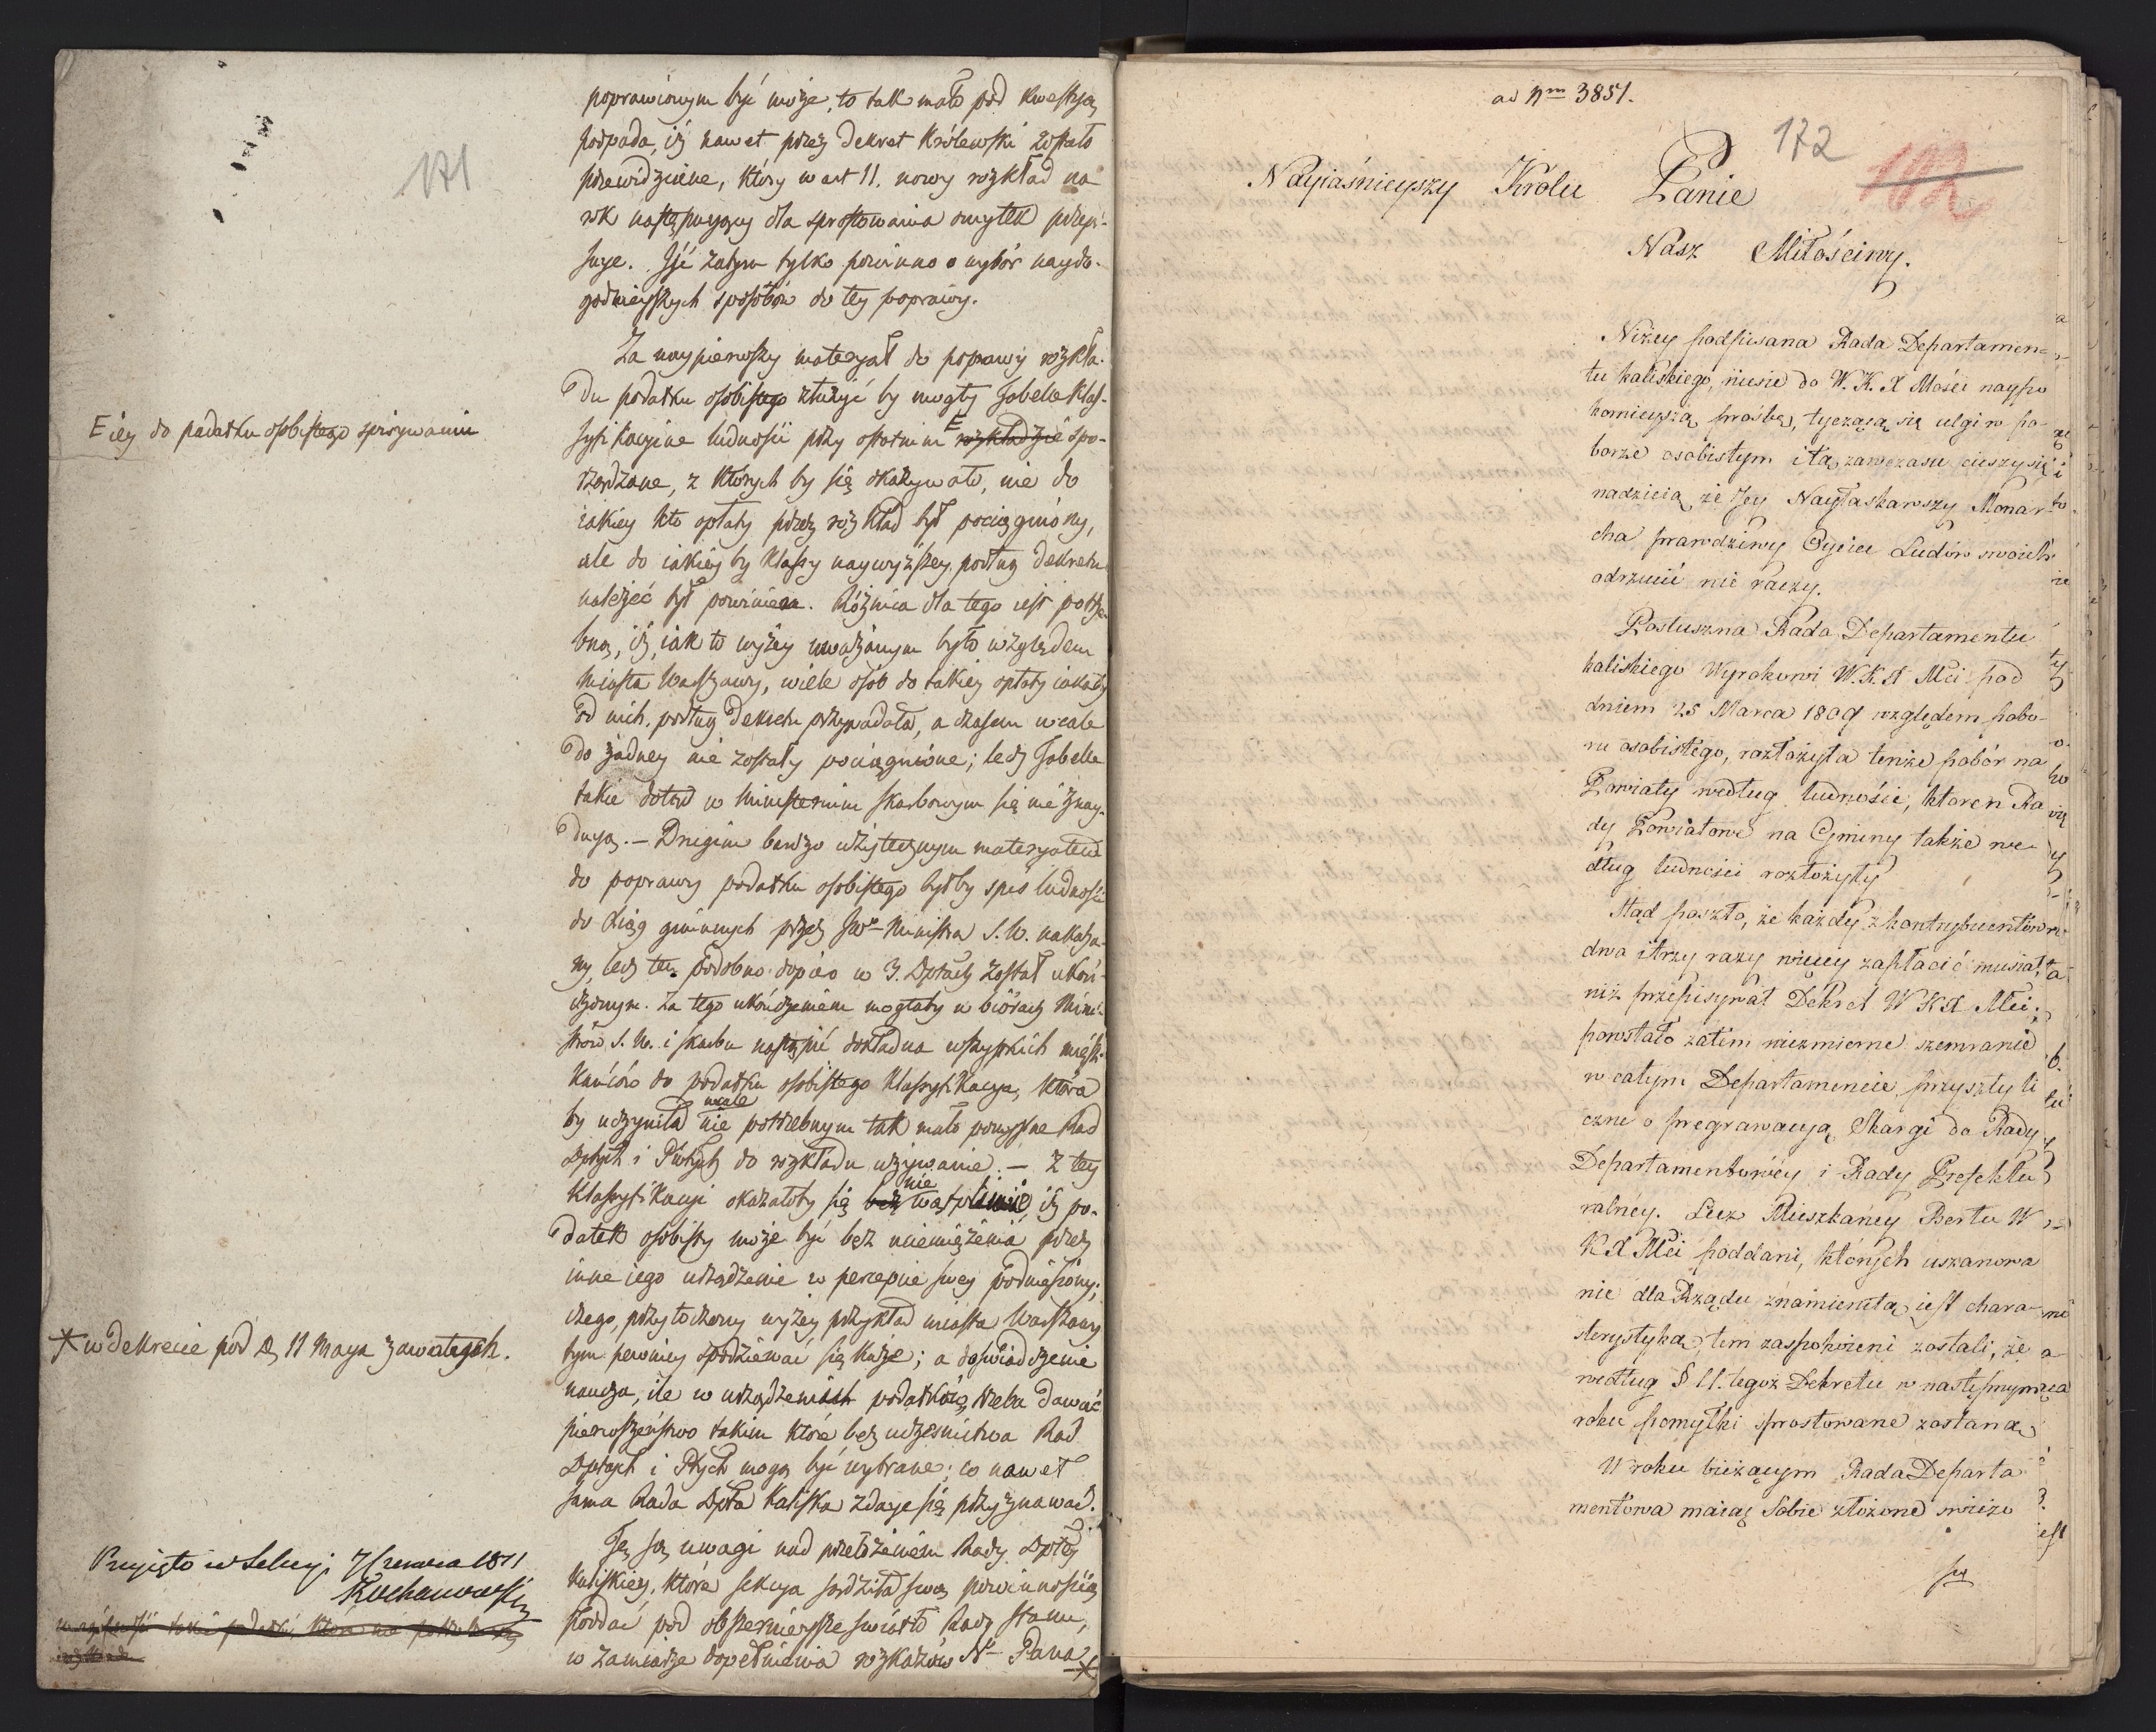 171
poprawionym być może, to tak mało pod kwestyą
podpada, iż nawet przez Dekret Królewski zostało
przewidziane, który w art 11. nowy rozkład na
rok następuyący dla sprostowania omyłek przepi-
suye. Iść zatym tylko powinno o wybór naydo-
godnieyszych sposobów do tey poprawy.
Za naypierwszy materyał do poprawy rozkła-
du podatku osobistego służyć by mogły Tabelle klas-
syfikacyine ludności przy ostatnim E rozkładzie spo-
rządzone, z których by się okazywało, nie do
iakiey kto opłaty przez rozkład był pociągniony,
ale do iakiey by klassy naywyższey podług Dekretu
należeć był powinien. Różnica dla tego iest potrze-
bną, iż, iak to wyżey uważanym było względem
Miasta Warszawy, wiele osób do takiey opłaty iakaby
od nich podług Dekretu przypadała, a czasem wcale
do żadney nie zostały pociągnione; lecz Tabelle
takie dotąd w Ministerium Skarbowym się nie znay-
duyą. – Drugim bardzo użytecznym materyałem
do poprawy podatku osobistego byłby spis ludności
do Xiąg gminnych przez JWo Ministra S. W. nakaza-
ny, lecz ten podobno dopiero w 3. Dptach został ukoń-
czonym. Za tego ukończeniem mogłaby w biórach Mini-
strów S. W. i Skarbu nastąpić dokładna wszystkich miesz-
kańców do podatku osobistego klassyfikacya, która
by uczyniła wcale nie potrzebnym tak mało pomyślne Rad
Dptych i Pwtych do rozkładu używanie. – Z tey
klassyfikacyi okazałoby się bez nie wątpliwie, iż po-
datek osobisty może być bez uciemiężenia przez
inne iego urządzenie w percepcie swey podniesiony;
czego, przytoczony wyżey przykład miasta Warszawy
tym pewniey spodziewać się każe; a doświadczenie
naucza, ile w urządzeniach podatków, trzeba dawać
pierwszeństwo takim które bez uczesnictwa Rad
Dptych i Ptych mogą być wybrane; co nawet
sama Rada Dpta Kaliska zdaye się przyznawać.
Te są uwagi nad przełożeniem Rady Dptey
Kaliskiey, które Sekcya sądziła swą powinnością
poddać pod obszernieysze światło Rady Stanu,
w zamiarze dopełnienia rozkazów No Pana *
E iey do podatku osobistego spisywaniu
* w dekrecie pod D. 11 Maya zawartych.
Przyięto w Sekcyi 7 Czerwca 1811
Kochanowski
ad Nm 3851.
172
Nayiaśnieyszy Królu Panie
Nasz Miłościwy.
Niżey podpisana Rada Departamen-
tu kaliskiego, niesie do W. K. X Mości naypo
kornieyszą prośbę, tyczącą się ulgi w po-
borze osobistym i tą zawczasu cieszy się
nadzieią że Jey Nayłaskawszy Monar-
cha prawdziwy Oyciec Ludów swoich
odrzucić nie raczy.
Posłuszna Rada Departamentu
kaliskiego Wyrokowi W. K. X Mci pod
dniem 25 Marca 1809 względem pobo-
ru osobistego, rozłożyła tenże pobór na
Powiaty według ludności, ktoren Ra
dy Powiatowe na Gminy także we-
dług ludności rozłożyły
Stąd poszło, że każdy z kontrybuentów
dwa i trzy razy więcey zapłacić musiał,
niż przepisywał Dekret W K X Mci;
powstało zatim niezmierne szemranie
w całym Departamencie, przyszły li
czne o pregrawacyą Skargi do Rady
Departamentowéy i Rady Prefektu
ralnéy. Lecz Mieszkańcy Berłu W
K X Mci poddani, których uszanowa
nie dla Rządu znamienitą iest chara-
kterystyką, tem zaspokoieni zostali, że
według § 11. tegoż Dekretu w następnym
roku pomyłki sprostowane zostaną
W roku bieżącym Rada Departa
mentowa maiąc Sobie złożone świeżo